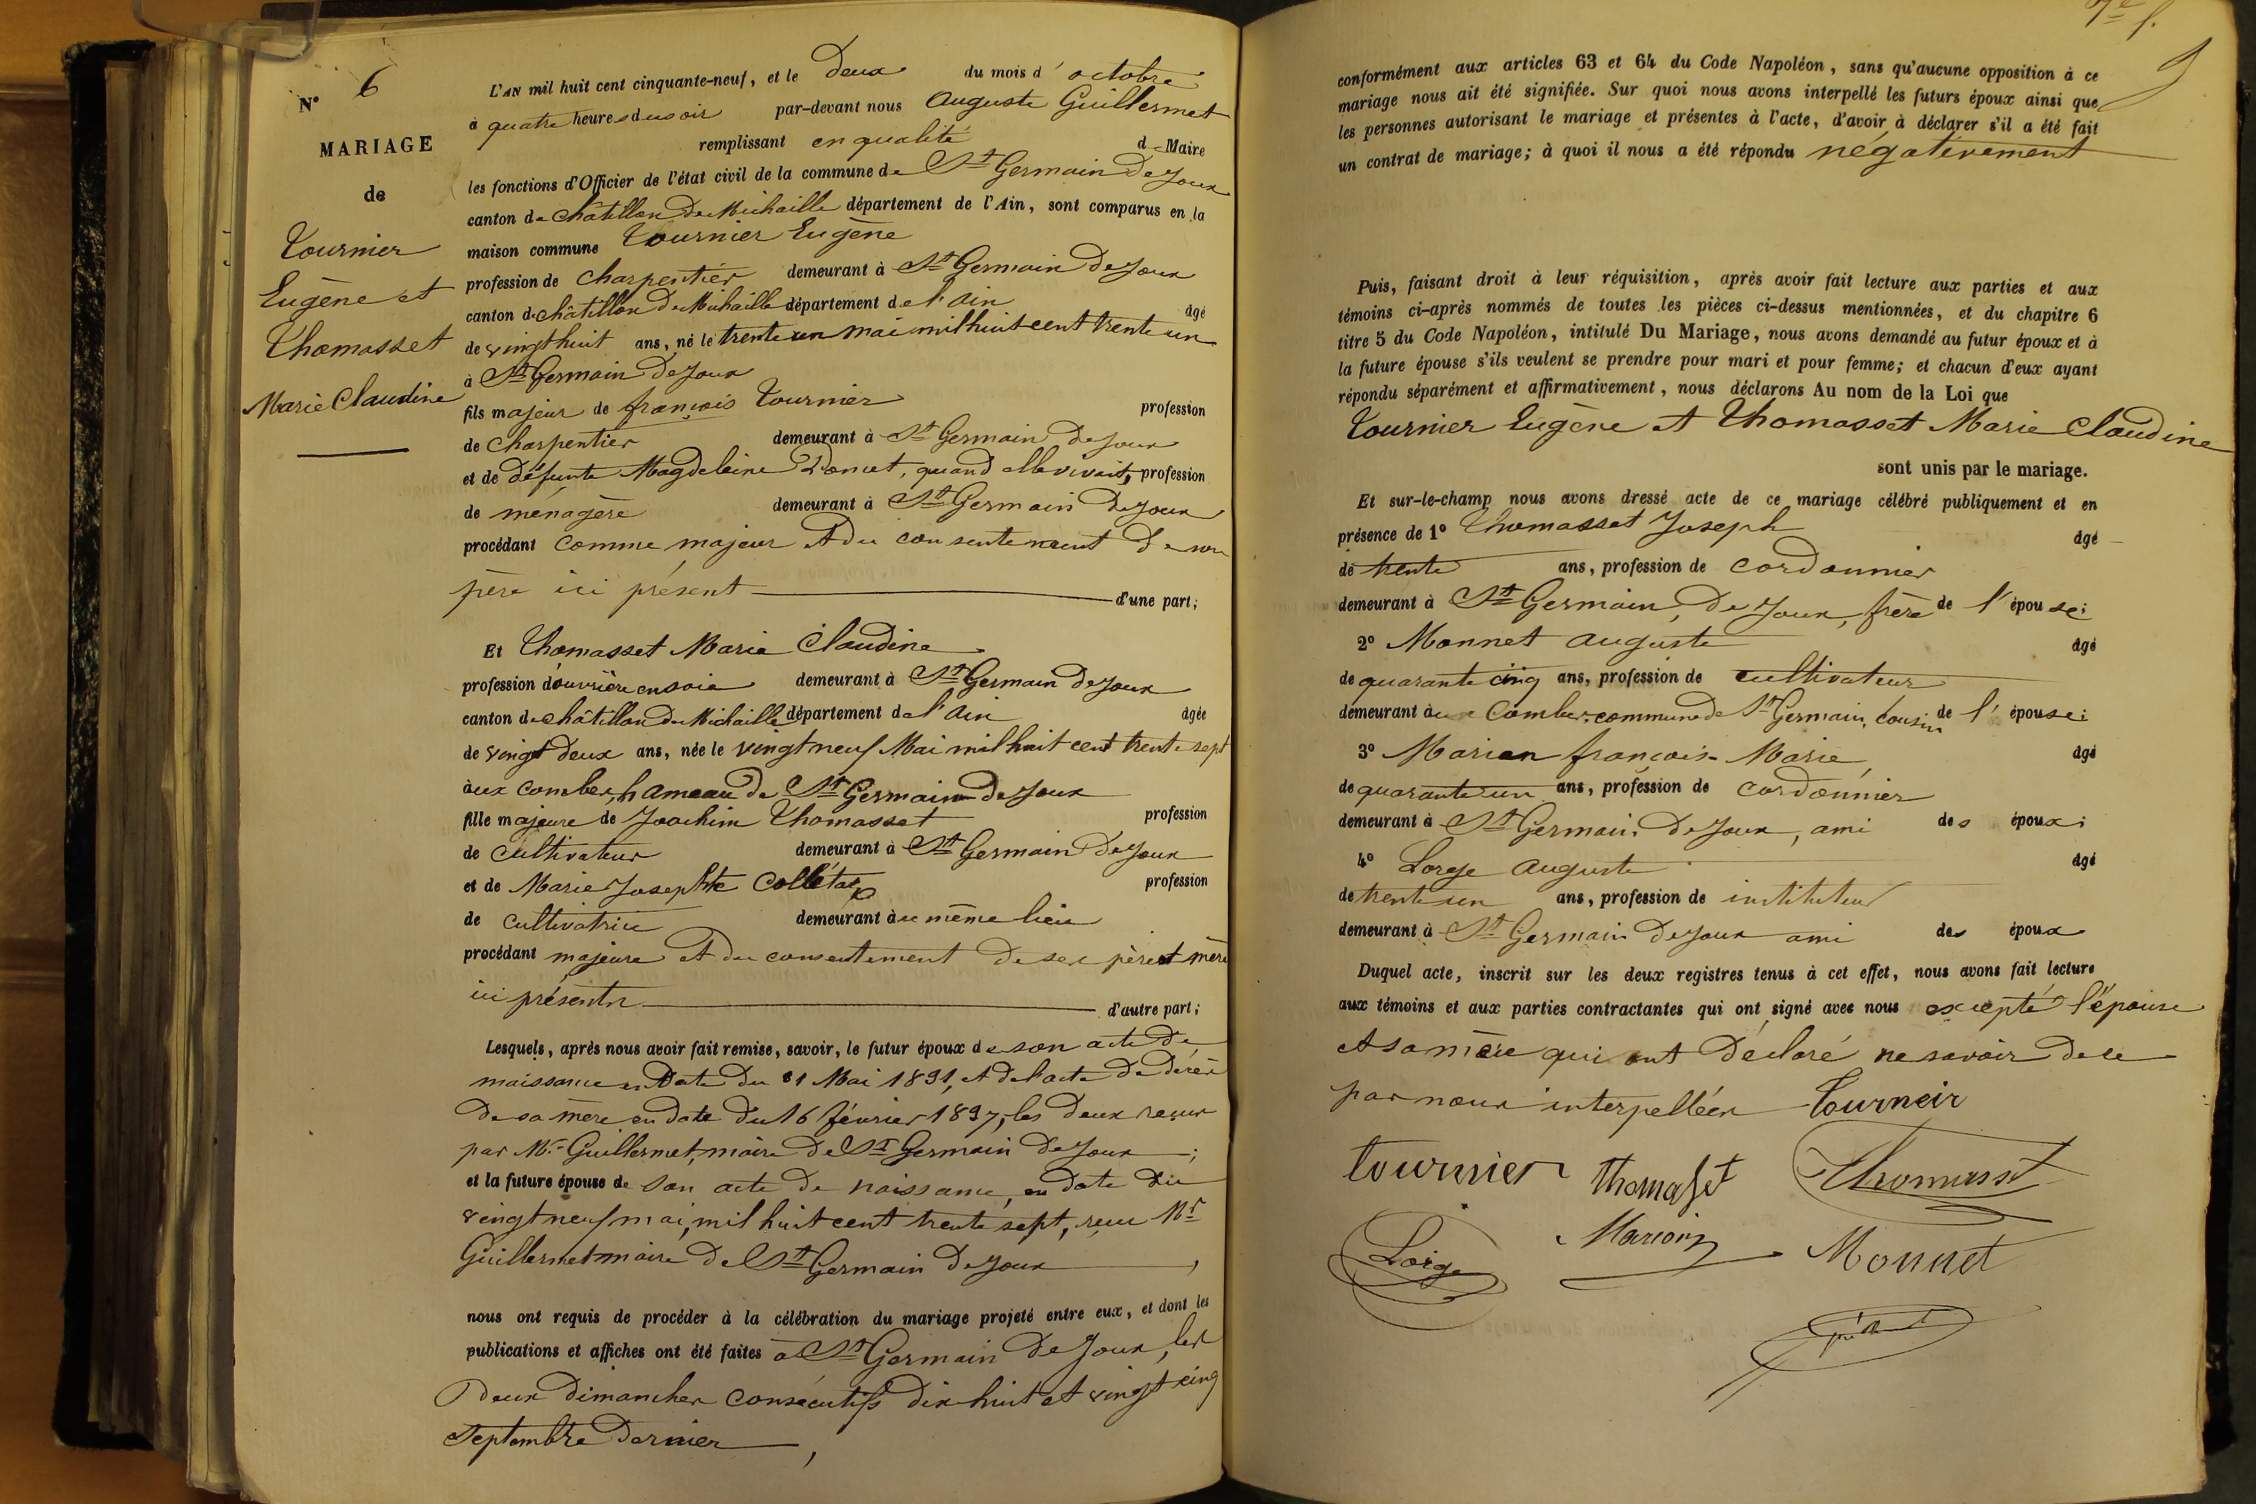 N° 6
MARIAGE
de
Tournier
Eugène et
Thomasset
Marie Claudine
L'AN mil huit cent cinquante-neuf, et le Deux du mois d'octobre
à quatre heures du soir par-devant nous Auguste Guillermet
remplissant en qualité de Maire
les fonctions d'Officier de l'état civil de la commune de St Germain De Joux
canton de Châtillon De Michaille département de l'Ain, sont comparus en la
maison commune Tournier Eugène
profession de charpentier demeurant à St Germain De Joux
canton de Châtillon De Michaille département de l'Ain âgé
de vingt huit ans, né le trente un mai mil huit cent trente un
à St Germain De Joux
fils majeur de françois Tournier profession
de charpentier demeurant à St Germain De Joux
et de défunte Magdeleine quand elle vivait, profession
de ménagère demeurant à St Germain De Joux
procédant comme majeur et du consentement de son
père ici présent d'une part;
Et Thomasset Marie Claudine
profession d'ouvrière en soie demeurant à St Germain De Joux
canton de Châtillon De Michaille département de l'Ain âgée
de vingt deux ans, née le vingt neuf Mai mil huit cent trente sept
aux combes, hameau de St Germain De Joux
fille majeure de Joachim Thomasset profession
de cultivateur demeurant à St Germain De Joux
et de Marie Josephte profession
de cultivatrice demeurant au même lieu
procédant majeure et du consentement de ses père et mère
ici présents d'autre part;
Lesquels, après nous avoir fait remise, savoir, le futur époux de son acte de
naissance en Date du 31 Mai 1831, et de l'acte de décès
de sa mère en date du 16 février 1837, les deux reçus
par Mr Guillermet, maire de St Germain De Joux;
et la future épouse de son acte de naissance, en date du
vingt neuf mai, mil huit cent trente sept, reçu Mr
Guillermet maire de St Germain De Joux,
nous ont requis de procéder à la célébration du mariage projeté entre eux, et dont les
publications et affiches ont été faites à St Germain De Joux, les
Deux dimanches consécutifs dix huit et vingt cinq
septembre dernier,
conformément aux articles 63 et 64 du Code Napoléon, sans qu'aucune opposition à ce
mariage nous ait été signifiée. Sur quoi nous avons interpellé les futurs époux ainsi que
les personnes autorisant le mariage et présentes à l'acte, d'avoir à déclarer s'il a été fait
un contrat de mariage; à quoi il nous a été répondu négativement
Puis, faisant droit à leur réquisition, après avoir fait lecture aux parties et aux
témoins ci-après nommés de toutes les pièces ci-dessus mentionnées, et du chapitre 6
titre 5 du Code Napoléon, intitulé Du Mariage, nous avons demandé au futur époux et à
la future épouse s'ils veulent se prendre pour mari et pour femme; et chacun d'eux ayant
répondu séparément et affirmativement, nous déclarons Au nom de la Loi que
Tournier Eugène et Thomasset Marie Claudine
sont unis par le mariage.
Et sur-le-champ nous avons dressé acte de ce mariage célébré publiquement et en
présence de 1° Thomasset Joseph âgé
de trente ans, profession de cordonnier
demeurant à St Germain De Joux, frère de l'épouse;
2° Monnet auguste âgé
de quarante cinq ans, profession de cultivateur
demeurant aux Combes, commune de St Germain, cousin de l'épouse;
3° Marion françois-Marie, âgé
de quarante un ans, profession de cordonnier
demeurant à St Germain De Joux, ami des époux;
4° Lorge Auguste âgé
de trente un ans, profession de instituteur
demeurant à St Germain De Joux ami des époux
Duquel acte, inscrit sur les deux registres tenus à cet effet, nous avons fait lecture
aux témoins et aux parties contractantes qui ont signé avec nous excepté l'épouse
et sa mère qui ont déclaré ne savoir de ce
par nous interpellées Tourneir
tournier thomaset Thomasset
Lorge Marion Monnet